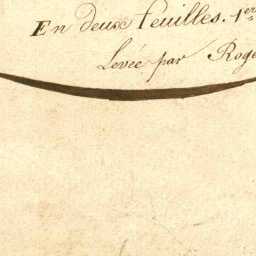 En deux feuilles. 1er
Levée par Roge